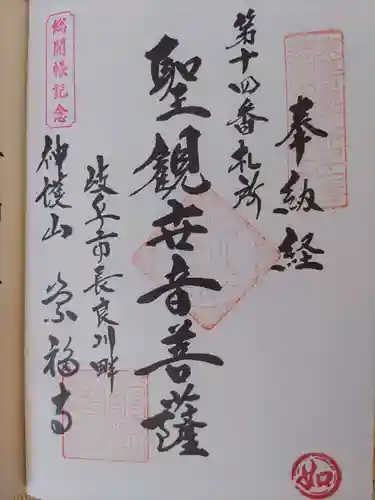 奉納経
第十四番札所
聖観世音菩薩
岐阜市長良川畔
神護山 崇福寺
総開帳記念
如